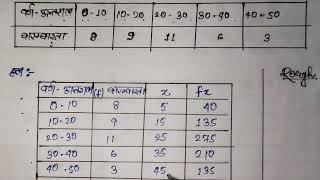 वर्ग-अन्तराल 0-10 10-20 20-30 30-40 40-50
बारम्बारता 8 9 11 6 3
हल :-
वर्ग-अन्तराल (f) बारम्बारता x fx
0-10 8 5 40
10-20 9 15 135
20-30 11 25 275
30-40 6 35 210
40-50 3 45 135
Rough